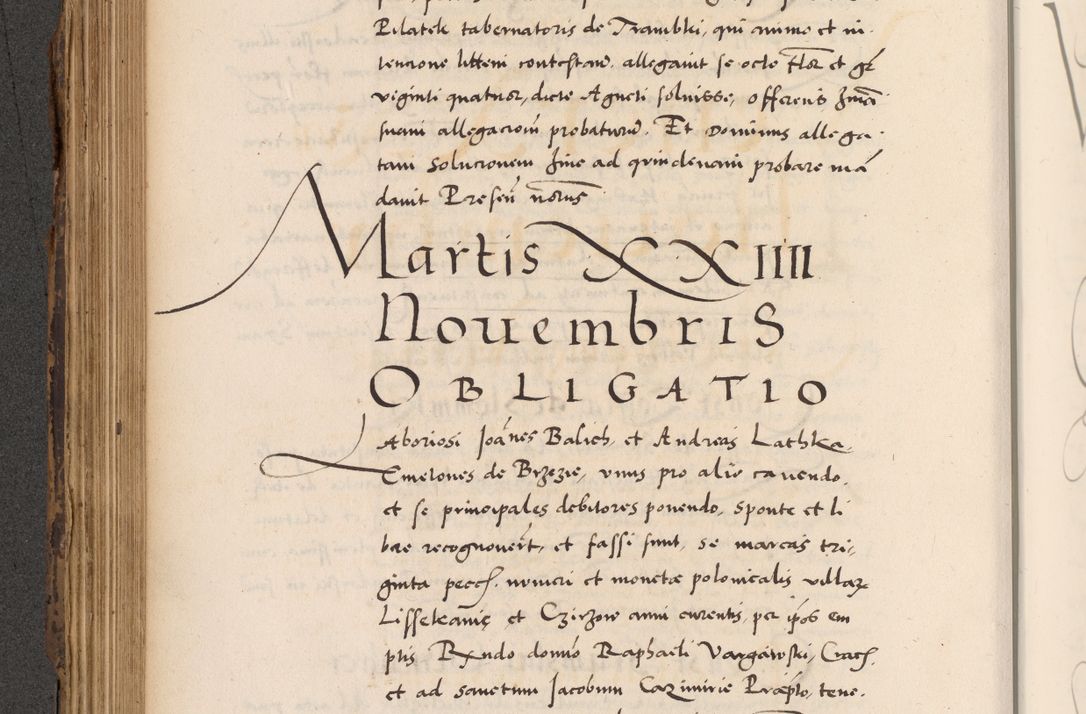 Pilatek tabernatoris de Tramblki, qui animo et in
tencione littem contestand. allegavit se octo flor et gr
viginti quatuor, dicte Agneti solvisse, offerens Jmā
suam allegaciom probaturū. Et Dominus allega
tam solucionem fine ad quindenam probare mā
davit Presen notus
Martis XXIIII
Novembris
OBLIGATIO
Laboriosi Joānes Balich, et Andreas Lathka
Cmetones de Brzezie, unus pro alio cavendo.
et se principales debitores ponendo, sponte et li
bere recognoverūt, et fassi sunt, se marcas tri,
ginta pecc. numeri et monetæ polonicalis
Lissekanię et Czirzow anni curentis, per ipōs em
ptis Rndo domīo Raphaeli Vargawski, Crac.
et ad sanctum Jacobum Cazimirie Præpto, tene.